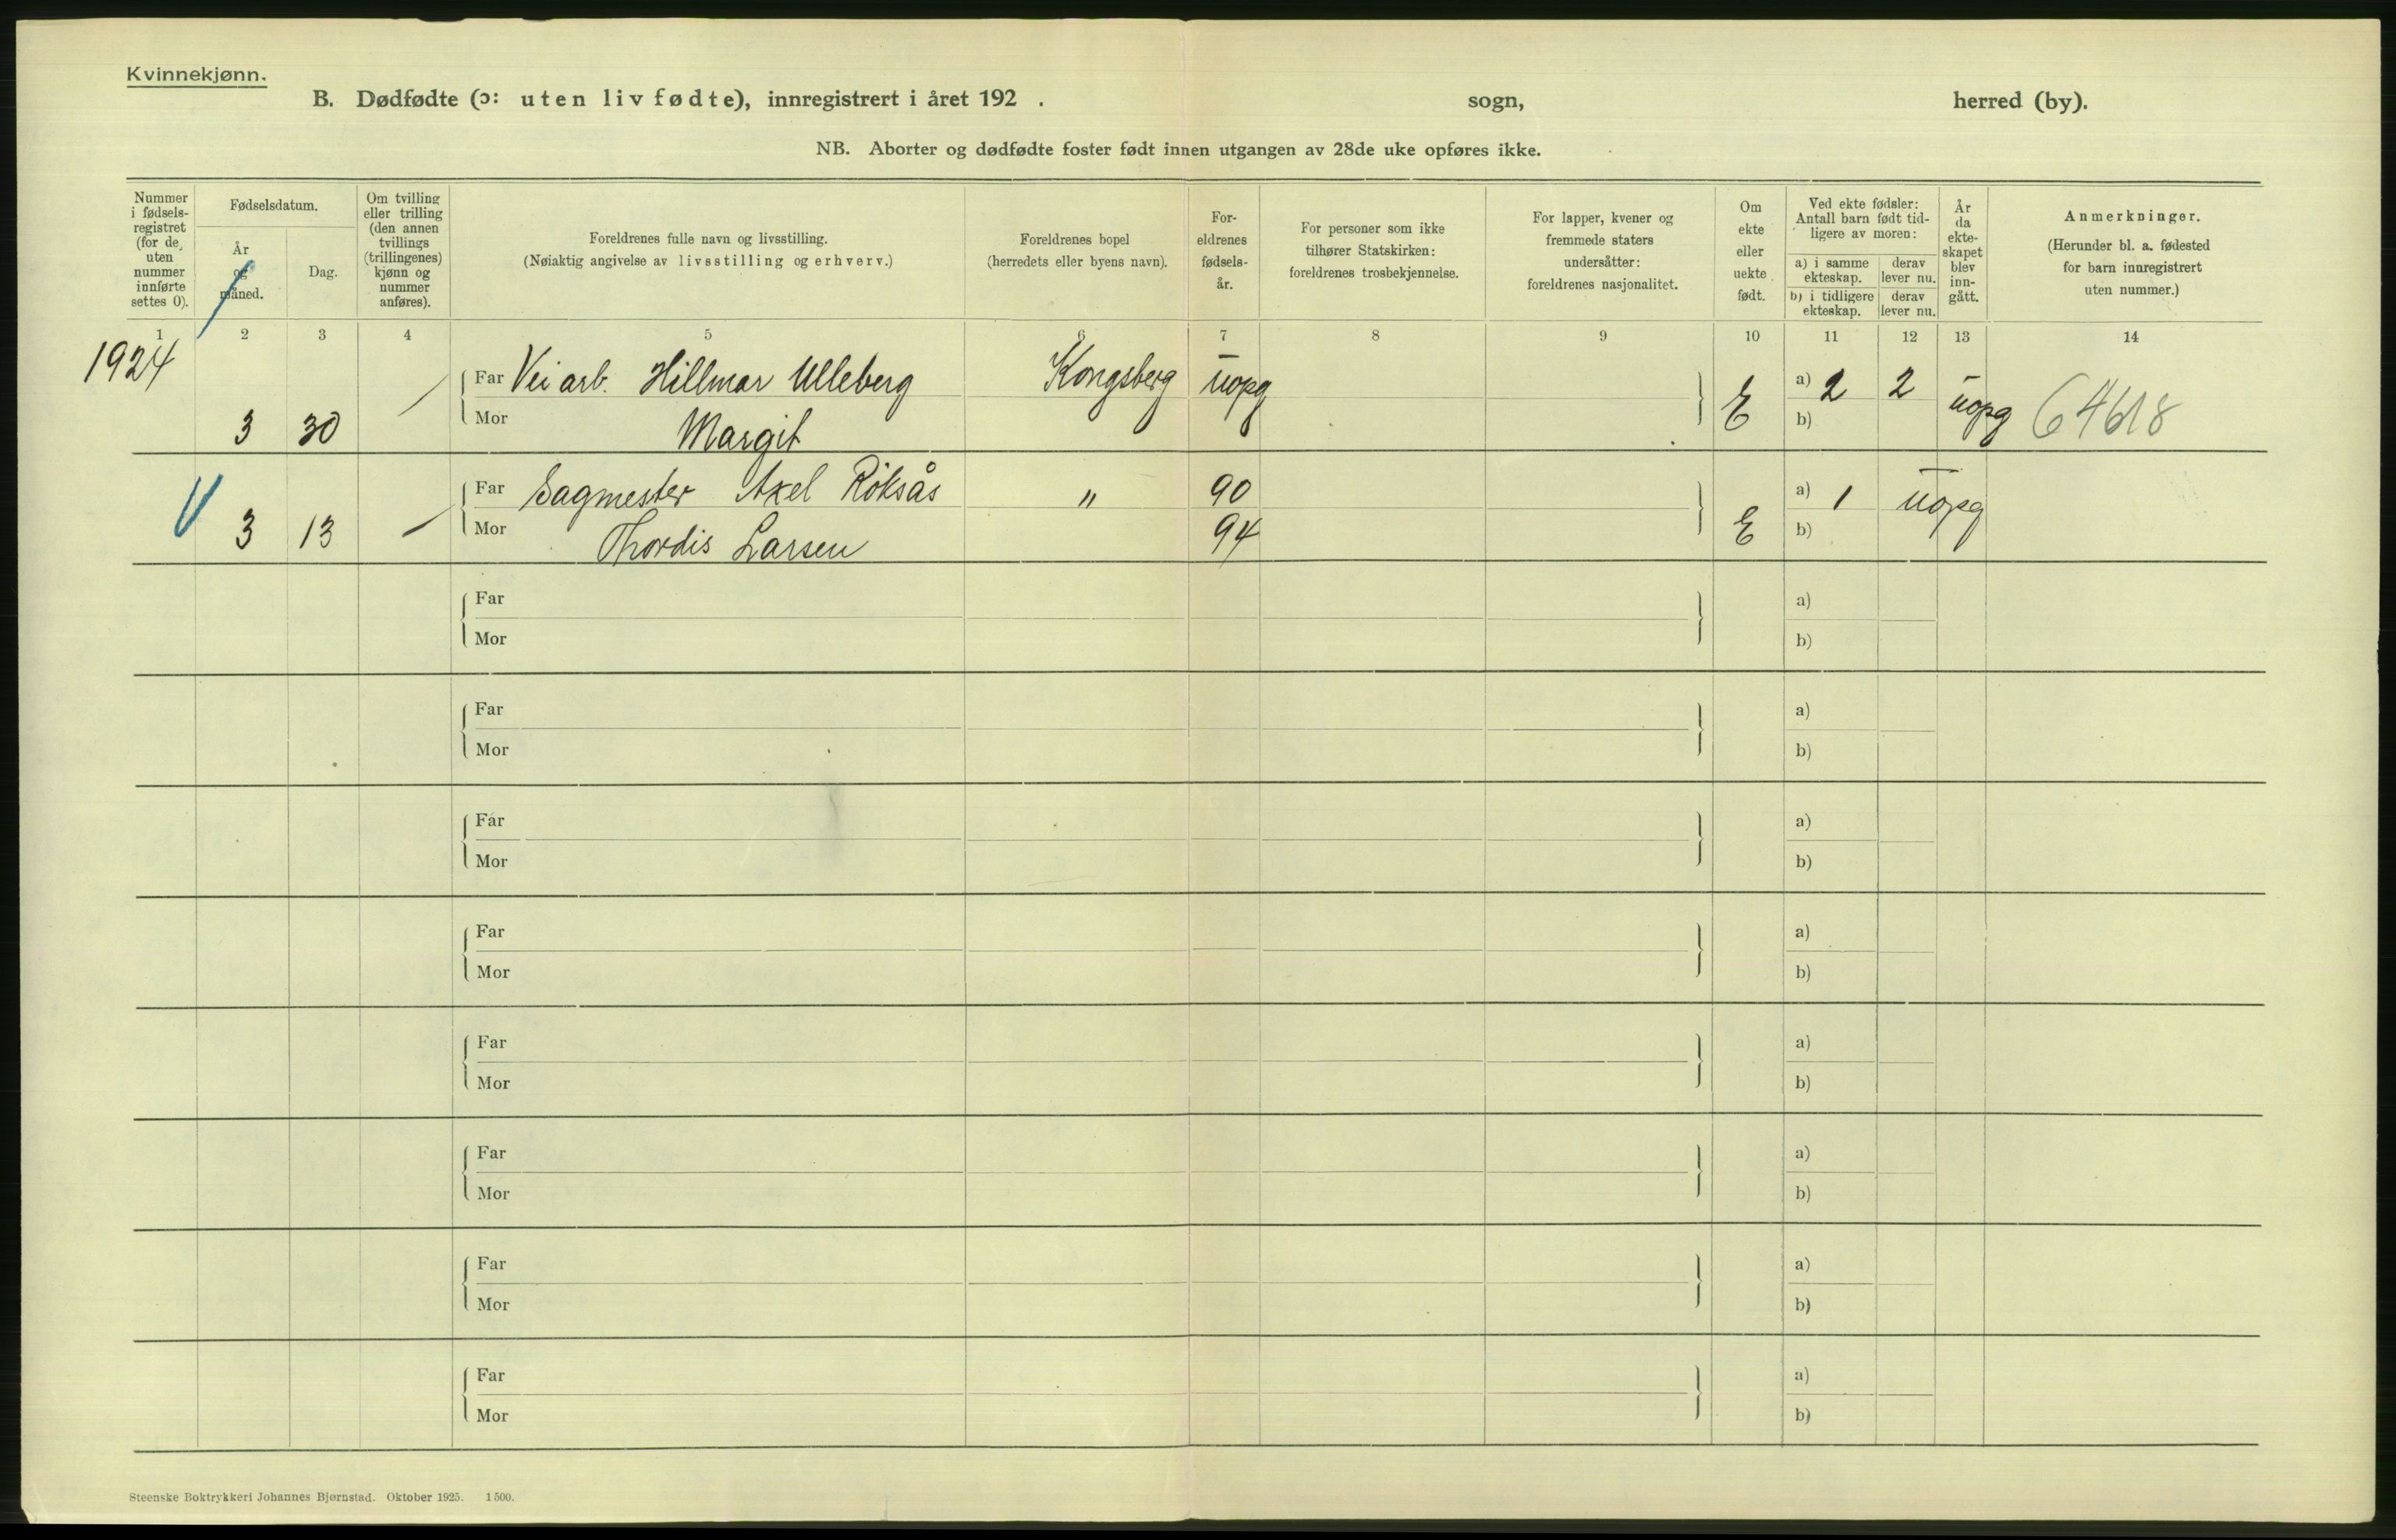 Kvinnekjønn.
B. Dødfødte (ɔ: uten liv fødte), innregistrert i året 192 . sogn, herred (by).
NB. Aborter og dødfødte foster født innen utgangen av 28de uke opføres ikke.
Nummer i fødsels-registret (for de uten nummer innførte settes 0).
Fødselsdatum.
År og måned.
Dag.
Om tvilling eller trilling (den annen tvillings (trillingenes) kjønn og nummer anføres).
Foreldrenes fulle navn og livsstilling.
(Nøiaktig angivelse av livsstilling og erhverv.)
Foreldrenes bopel
(herredets eller byens navn).
For-eldrenes fødsels-år.
For personer som ikke tilhører Statskirken: foreldrenes trosbekjennelse.
For lapper, kvener og fremmede staters undersåtter: foreldrenes nasjonalitet.
Om ekte eller uekte født.
Ved ekte fødsler: Antall barn født tid-ligere av moren:
a) i samme ekteskap.
derav lever nu.
b) i tidligere ekteskap.
derav lever nu.
År da ekte-skapet blev inn-gått.
Anmerkninger.
(Herunder bl. a. fødested for barn innregistrert uten nummer.)
1 2 3 4 5 6 7 8 9 10 11 12 13 14
1924
3 30 Far Vei arb. Hillmar Ulleberg Kongsberg uopg E a) 2 2 uopg 64618
Mor Margit b)
3 13 Far Sagmester Axel Röksås " 90 E a) 1 uopg
Mor Thordis Larsen 94 b)
Far a)
Mor b)
Far a)
Mor b)
Far a)
Mor b)
Far a)
Mor b)
Far a)
Mor b)
Far a)
Mor b)
Far a)
Mor b)
Far a)
Mor b)
Steenske Boktrykkeri Johannes Bjørnstad. Oktober 1925. 1500.